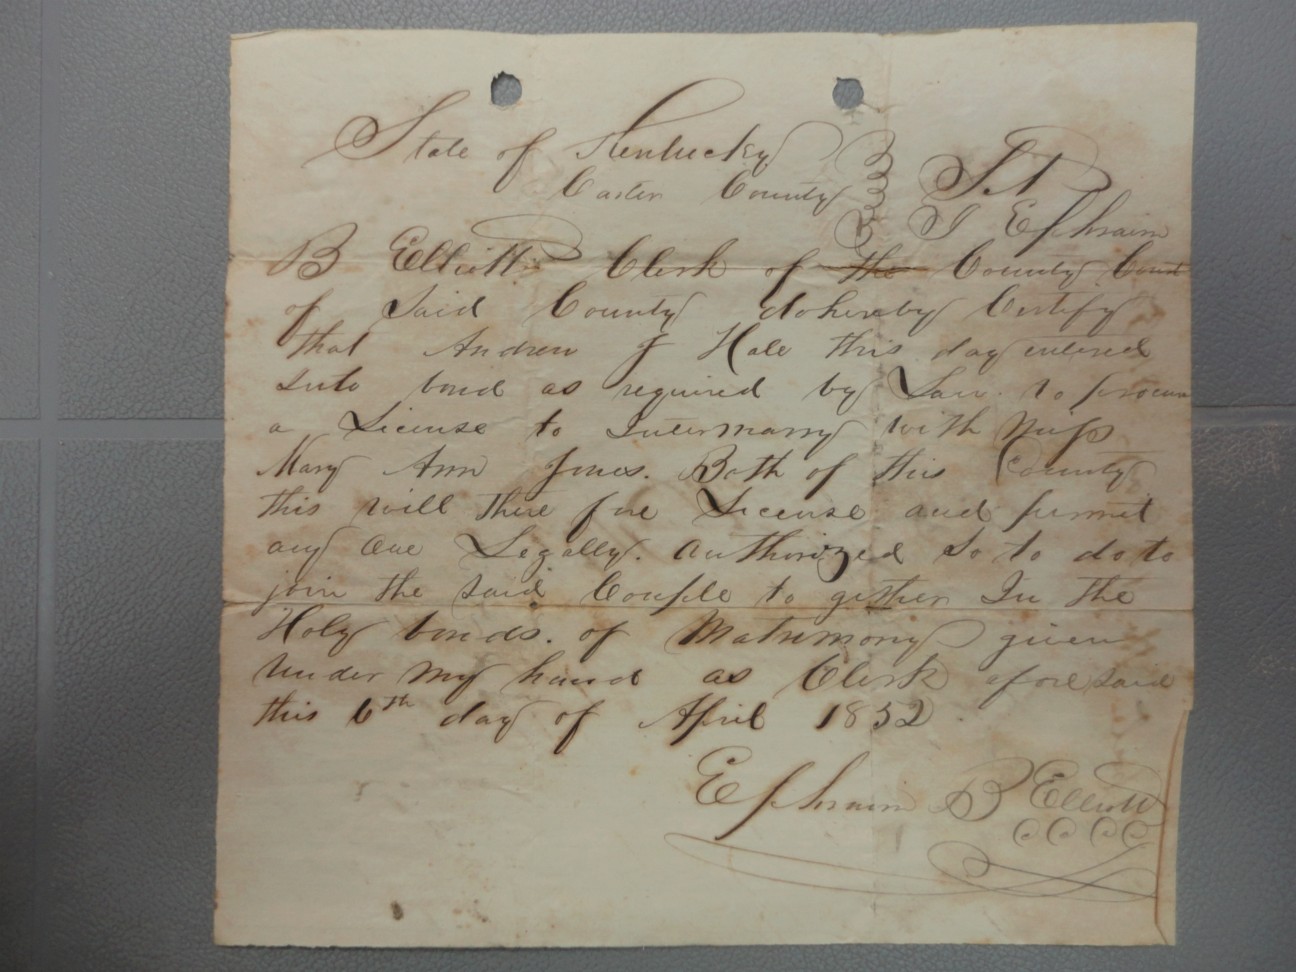 State of Kentucky
Carter County } Sct
I Ephraim
B Elliott Clerk of the County Court
of Said County dohereby Certify
that Andrew J Hale this day entered
Into bond as required by Law. to procure
a License to Intermarry with Miss
Mary Ann Jones. Both of this County
this will There fore License and permit
any One Legally. Authorized So to do to
join the said Couple to gether In the
Holy bonds. of Matrimony given
under my hand as Clerk afore said
this 6th day of April 1852
Ephraim B Elliott
CCCC